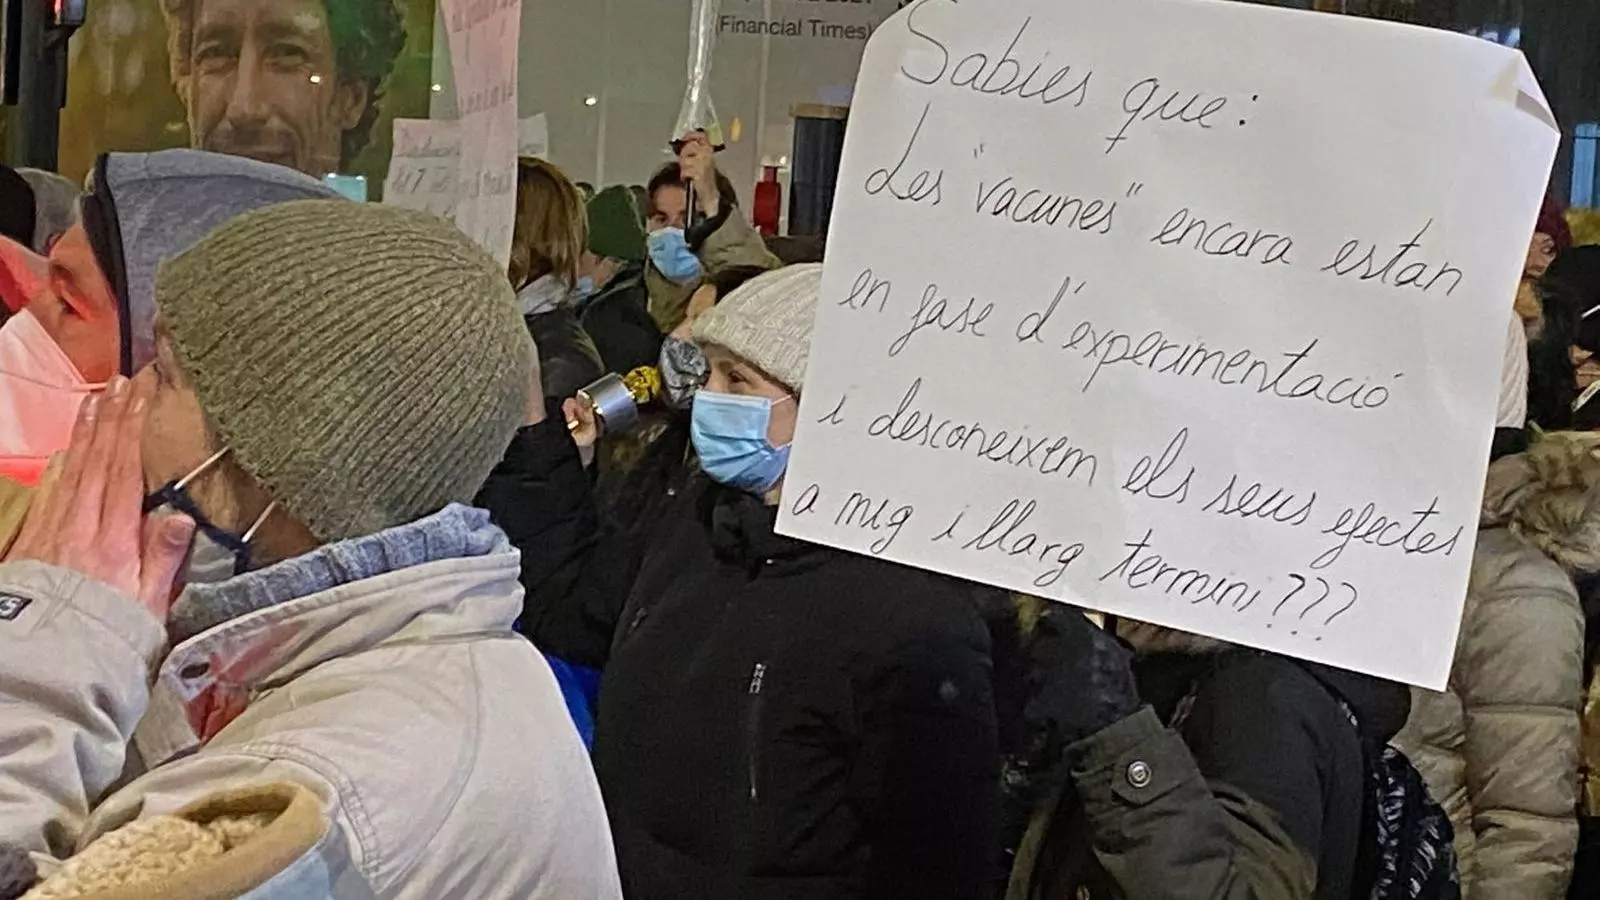 (Financial Times)
Sabies que:
Les "vacunes" encara estan
en fase d'experimentació
i desconeixem els seus efectes
a mig i llarg termini???